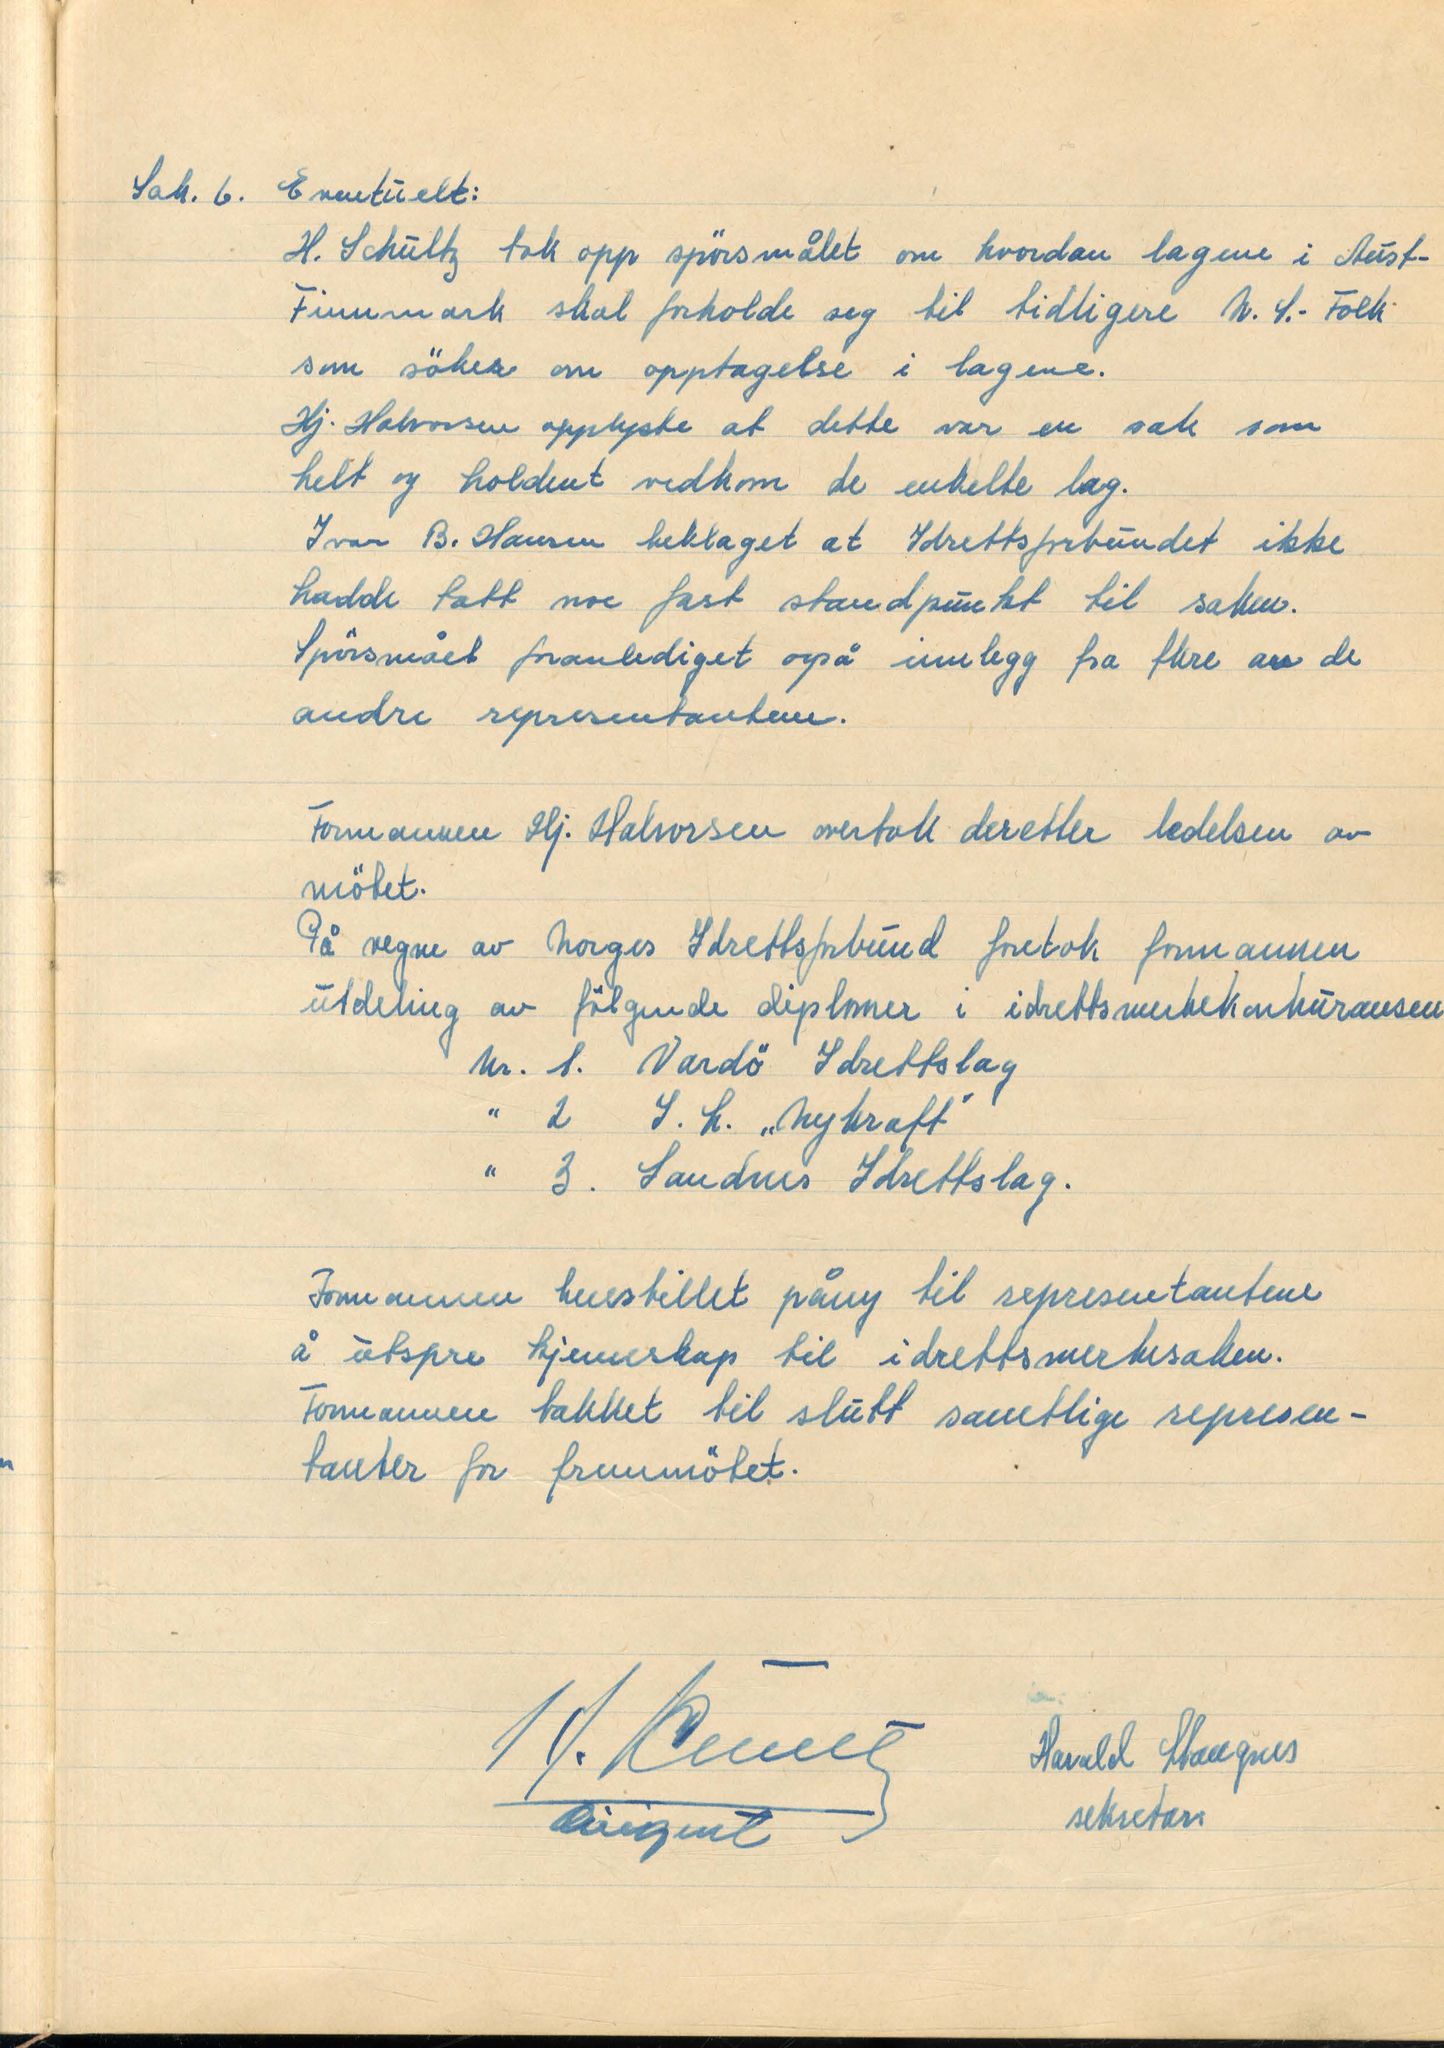 Sak. 6. Eventuelt:
H. Schültz tok opp spörsmålet om hvordan lagene i Aust-
Finnmark skal forholde seg til tidligere N.S.-Folk
som söker om opptagelse i lagene.
Hj. Halvorsen opplyste at dette var en sak som
helt og holdent vedkom de enkelte lag.
Ivar B. Hansen beklaget at Idrettsforbundet ikke
hadde tatt noe fast standpunkt til saken.
Spörsmålet foranlediget også innlegg fra flere av de
andre representantene.
Formannen Hj. Halvorsen overtok deretter ledelsen av
mötet.
På vegne av Norges Idrettsforbund foretok formannen
utdeling av fölgende diplomer i idrettsmerkekonkuransen
Nr. 1. Vardö Idrettslag
" 2 I.L. „Nykraft"
" 3. Sandnes Idrettslag.
Formannen henstillet påny til representantene
å utspre kjennskap til idrettsmerkesaken.
Formannen takket til slutt samtlige represen-
tanter for fremmötet.
Harald
Dirigent sekretær